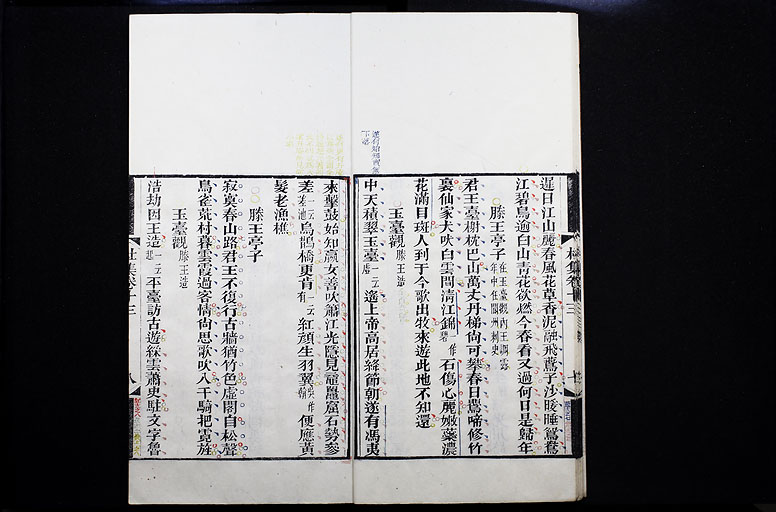 遲日江山麗春風花草香泥融飛燕子沙暖睡鴛鴦
江碧鳥逾白山青花欲燃今春看又過何日是歸年
滕王亭子在玉臺觀內王調露年中任閬州刺史
君王臺榭枕巴山萬丈丹梯尚可攀春日鶯啼修竹
裏仙家犬吠白雲間清江錦一作碧石傷心麗嫩蕊濃
花滿目班人到于今歌出牧來遊此地不知還
玉臺觀滕王造
中天積翠玉臺遙上帝高居絳節朝遂有馮夷
來擊鼓始知嬴女善吹簫江光隱見黿鼉窟石勢參
差一云差池烏鵲橋更肯有一云紅顏生羽翼便應黃
髮老漁樵
滕王亭子
寂寞春山路君王不復行古牆猶竹色虛閣自松聲
鳥雀荒村暮雲霞過客情尚思歌吹入千騎把霓旌
玉臺觀滕王造
浩劫因王造一云起平臺訪古遊綵雲蕭史駐文字魯
杜集卷十三
八